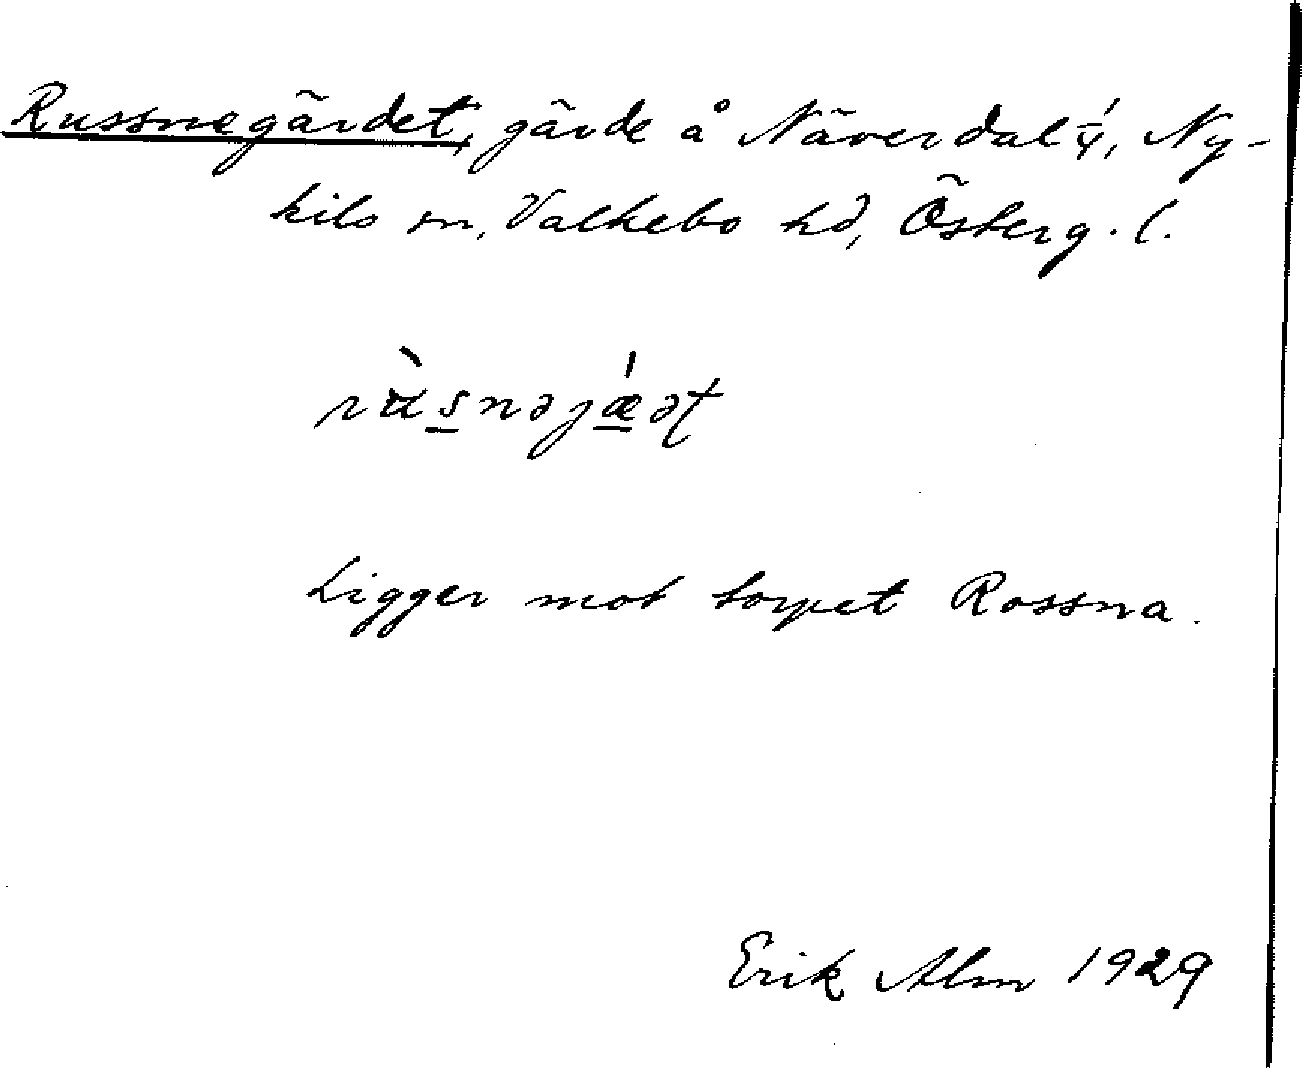 Russnegärdet, gärde å Näverdal 1/4, Ny-
kils sn, Valkebo hd, Österg. l.
Ligger mot torpet Rossna.
Erik Alm 1929